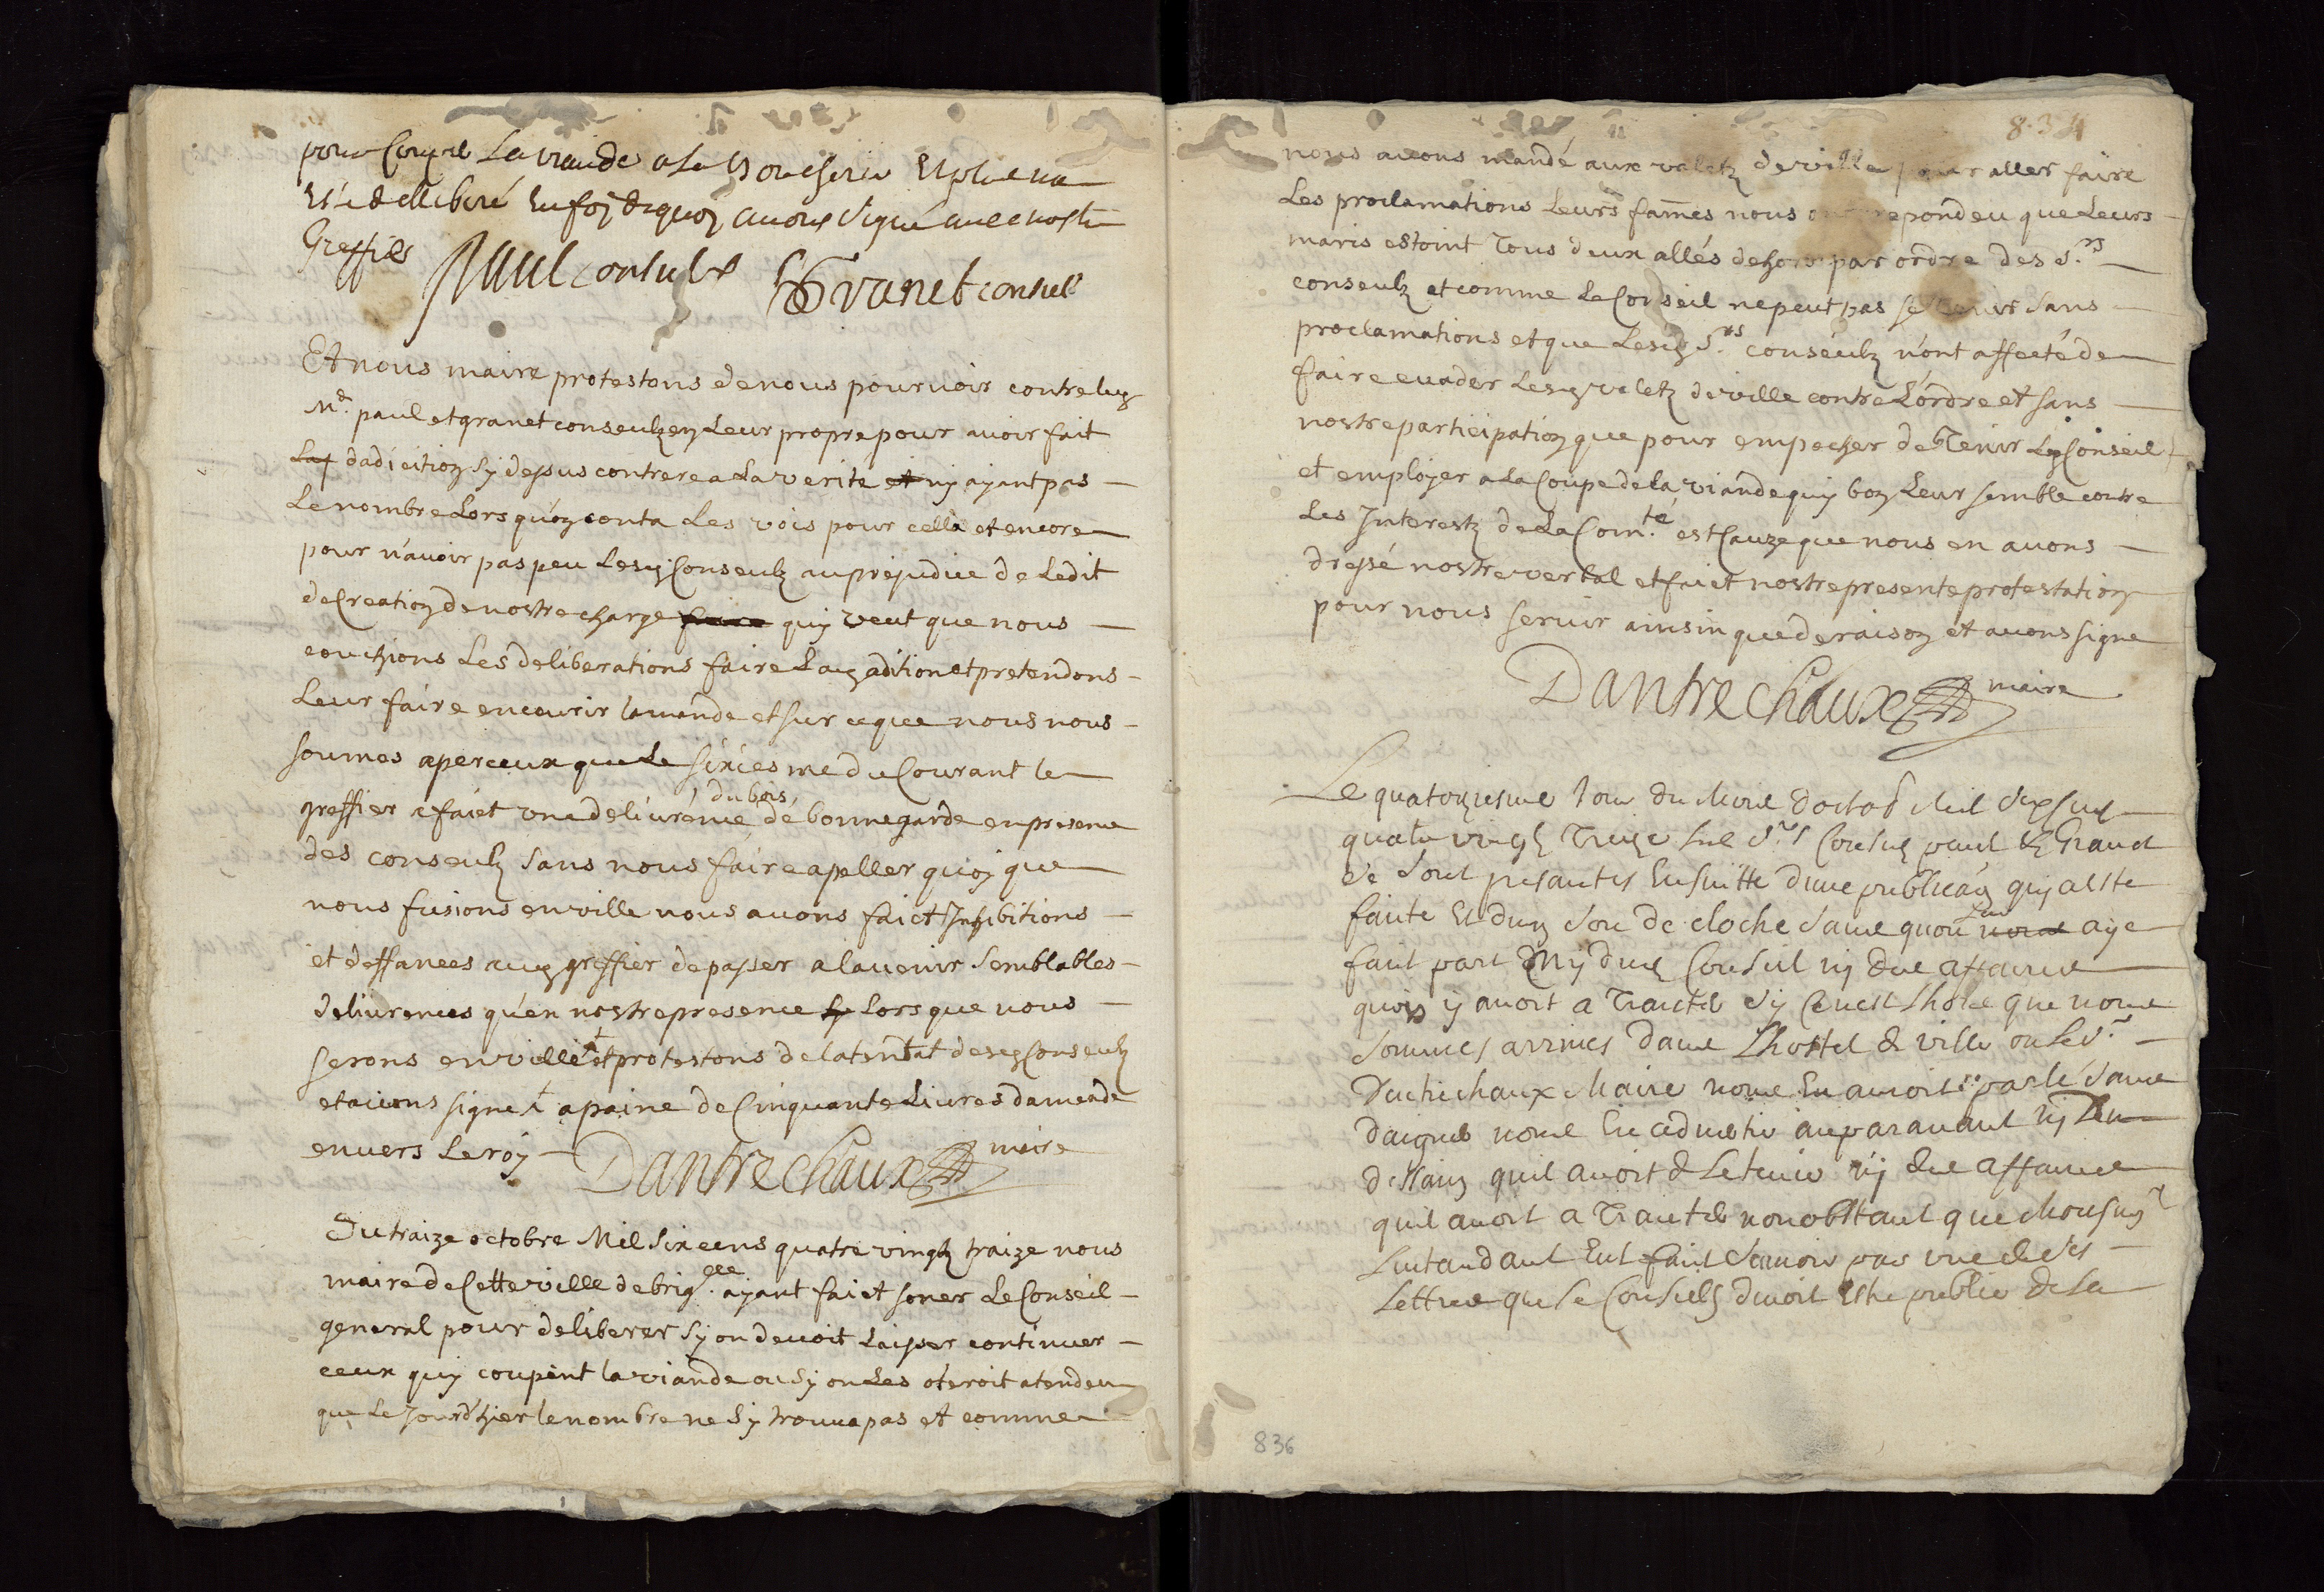 pour Couper La viande a La Boucherie Et plus na
Esté delliberé En foy dequoy avons signé avec nostre
Greffier
Paul consul Granet consul
Et nous maire protestons de nous pourvoir contre les
Mrs. paul et granet conseulz en Leur propre pour avoir fait
dadicition sy dessus contrere a La verité et ny ayant pas
Le nombre Lors quon conta Les vois pour cella et encore
pour n'avoir pas peu Lesd Conseulz au prejudice de Ledit
de Creation de nostre charge faire quy veut que nous
couchions Les deliberations faire Lad adition et pretendons
Leur faire encourir lamande et sur ce que nous nous
soumes aperceux que Le sixiesme du Courant le
du bois
greffier a faict une delivrence de bonnegarde en presence
des conseulz sans nous faire apeller quoy que
nous fusions en ville nous avons faict Inhibitions
et deffances aud greffier de passer a lavenir semblables
delivrences qu'en nostre presence sy Lors que nous
serons en ville + et protestons de latentat desd Conseulz
et avons signe + a paine de Cinquante Livres damende
envers Le roy
Dantrechaux maire
Du traize octobre Mil six cens quatre vingtz traize nous
maire de Cette ville de brig.lle ayant faict soner Le Conseil
general pour deliberer sy on devoit Laisser continuer
ceux quy coupent la viande ou sy on Les oteroit atendeu
que Le Jourd'hier le nombre ne sy trouva pas et comme
8.34
nous avons mandé aux valetz de ville pour aller faire
Les proclamations Leurs fames nous ont repondeu que Leurs
maris estoint Tous deux allés dehors par ordre des S.rs
conseulz et comme Le Conseil ne peut pas se tenir sans
proclamations et que Lesd S.rs conseulz n'ont affecté de
faire evader Lesd valetz de ville contre L'ordre et sans
nostre participation que pour empecher de Tenir Led Conseil
et employer a La Coupe de la viande quy bon Leur semble contre
Les Interestz de La Com.té est Cauze que nous en avons
dressé nostre verbal et faict nostre presente protestation
pour nous servir ainsin que de raison et avons signe
Dantrechaux maire
Le quatorziesme Jour du Mois doctob Mil six cens
quatre vingtz Treize Les S.rs Consulz paul & Granet
se sont presantés Ensuitte dune publica.on quy a esté
faite Et dun son de cloche sans quon Leur nous aye
fait part ny dud Conseil ny des affaires
quois y avoit a Traicter sy Ce nest Lhors que nous
sommes arrives dans Lhostel de ville ou Le S.r
Dantrechaux Maire nous En auroit parlé sans
daigner nous En advertir auparavant ny Leu
dessain quil avoit de Le tenir ny des affaires
quil avoit a Traicter nonobstant que Monsieur
Lintandant Eut fait scavoir par une de ses
Lettres que Le Conseil devoit Estre publié de La
836